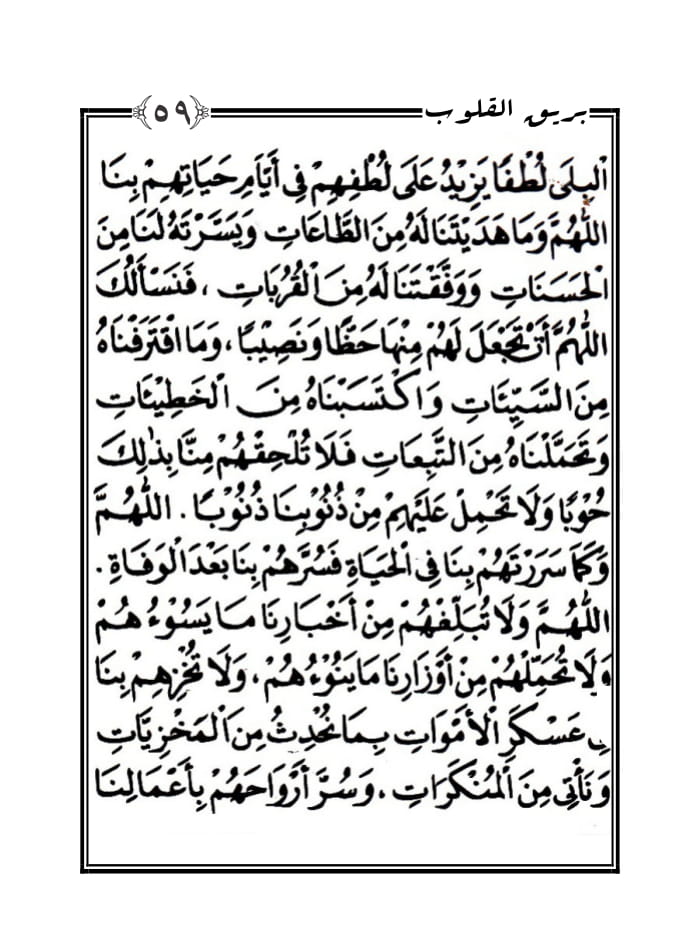 بريق القلوب
٥٩
الْبِلَى لُطْفًا يَزِيْدُ عَلَى لُطْفِهِمْ فِي أَيَّامِ حَيَاتِهِمْ بِنَا
اللّٰهُمَّ وَمَا هَدَيْتَنَا لَهُ مِنَ الطَّاعَاتِ وَيَسَّرْتَهُ لَنَا مِنَ
الْحَسَنَاتِ وَوَفَّقْتَنَا لَهُ مِنَ الْقُرُبَاتِ ، فَنَسْأَلُكَ
اللّٰهُمَّ أَنْ تَجْعَلَ لَهُمْ مِنْهَا حَظًّا وَنَصِيْبًا ، وَمَا اقْتَرَفْنَاهُ
مِنَ السَّيِّئَاتِ وَاكْتَسَبْنَاهُ مِنَ الْخَطِيْئَاتِ
وَتَحَمَّلْنَاهُ مِنَ التَّبِعَاتِ فَلَا تُلْحِقْهُمْ مِنَّا بِذٰلِكَ
حُوْبًا وَلَا تَحْمِلْ عَلَيْهِمْ مِنْ ذُنُوْبِنَا ذُنُوْبًا . اللّٰهُمَّ
وَكَمَا سَرَرْتَهُمْ بِنَا فِي الْحَيَاةِ فَسُرَّهُمْ بِنَا بَعْدَ الْوَفَاةِ .
اللّٰهُمَّ وَلَا تُبَلِّغْهُمْ مِنْ أَخْبَارِنَا مَا يَسُوْءُهُمْ
وَلَا تُحَمِّلْهُمْ مِنْ أَوْزَارِنَا مَا يَنُوْءُهُمْ ، وَلَا تُخْزِهِمْ بِنَا
فِي عَسْكَرِ الْأَمْوَاتِ بِمَا نُحْدِثُ مِنَ الْمَخْزِيَّاتِ
وَنَأْتِي مِنَ الْمُنْكَرَاتِ ، وَسُرَّ أَرْوَاحَهُمْ بِأَعْمَالِنَا